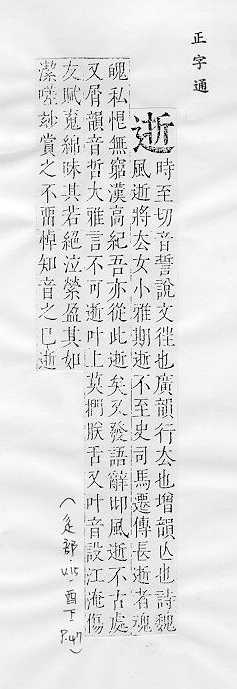 正字通
逝
時至切音誓說文徃也廣韻行去也增韻亾也詩魏
風逝將去女小雅期逝不至史司馬遷傳長逝者魂
魄私恨無窮漢高紀吾亦從此逝矣又發語辭邶風逝不古處
又屑韻音哲大雅言不可逝叶上莫捫朕舌又叶音設江淹傷
友賦寬綿昧其若絕泣縈盈其如
潔嗟妙賞之不留悼知音之已逝
(辵部·V.15·酉下 P.47)